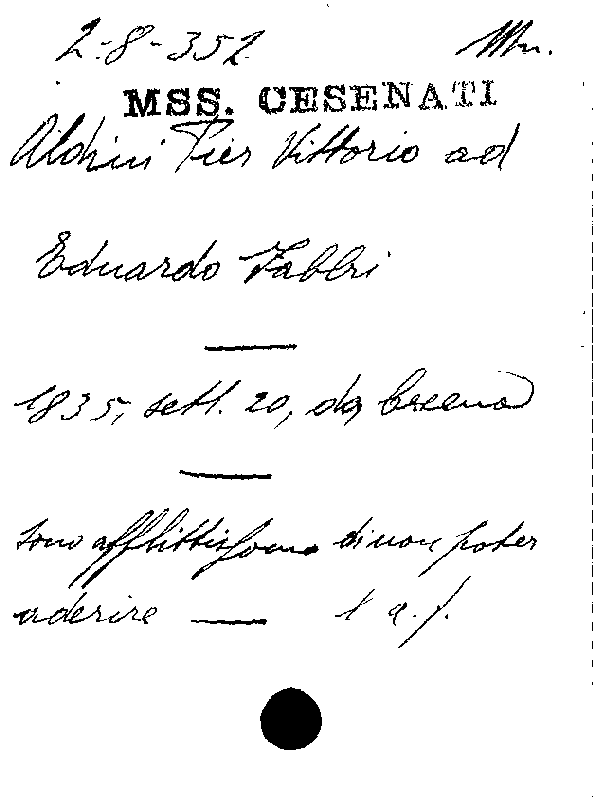 2-8-352 Mn.
MSS. CESENATI
Aldini Pier Vittorio ad
Eduardo Fabbri
1835, sett. 20, da Cesena
sono afflittissimo di non poter
aderire — 1 a. f.